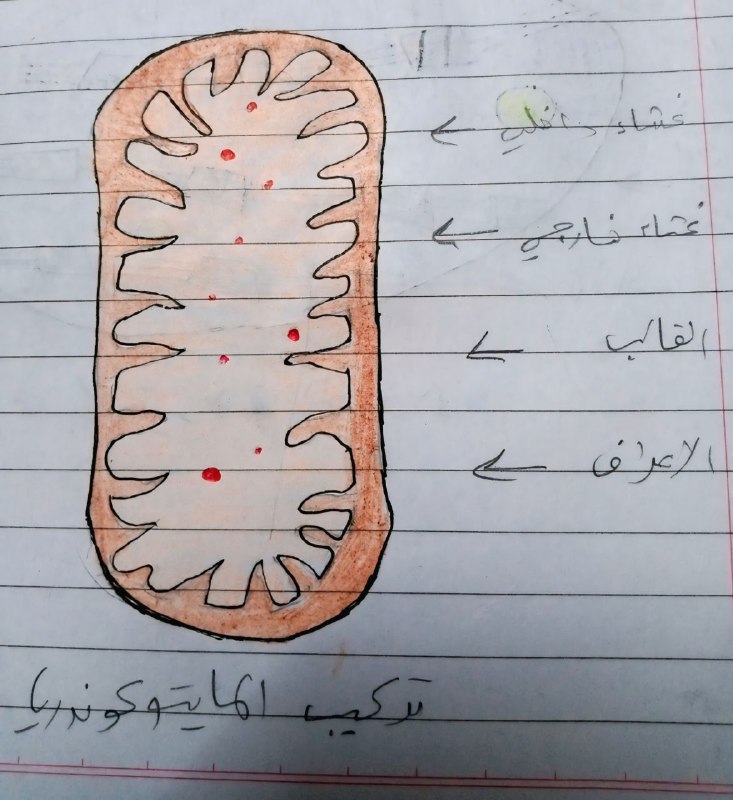 غشاء داخلي
غشاء خارجي
القالب
الاعراف
تركيب المايتوكوندريا